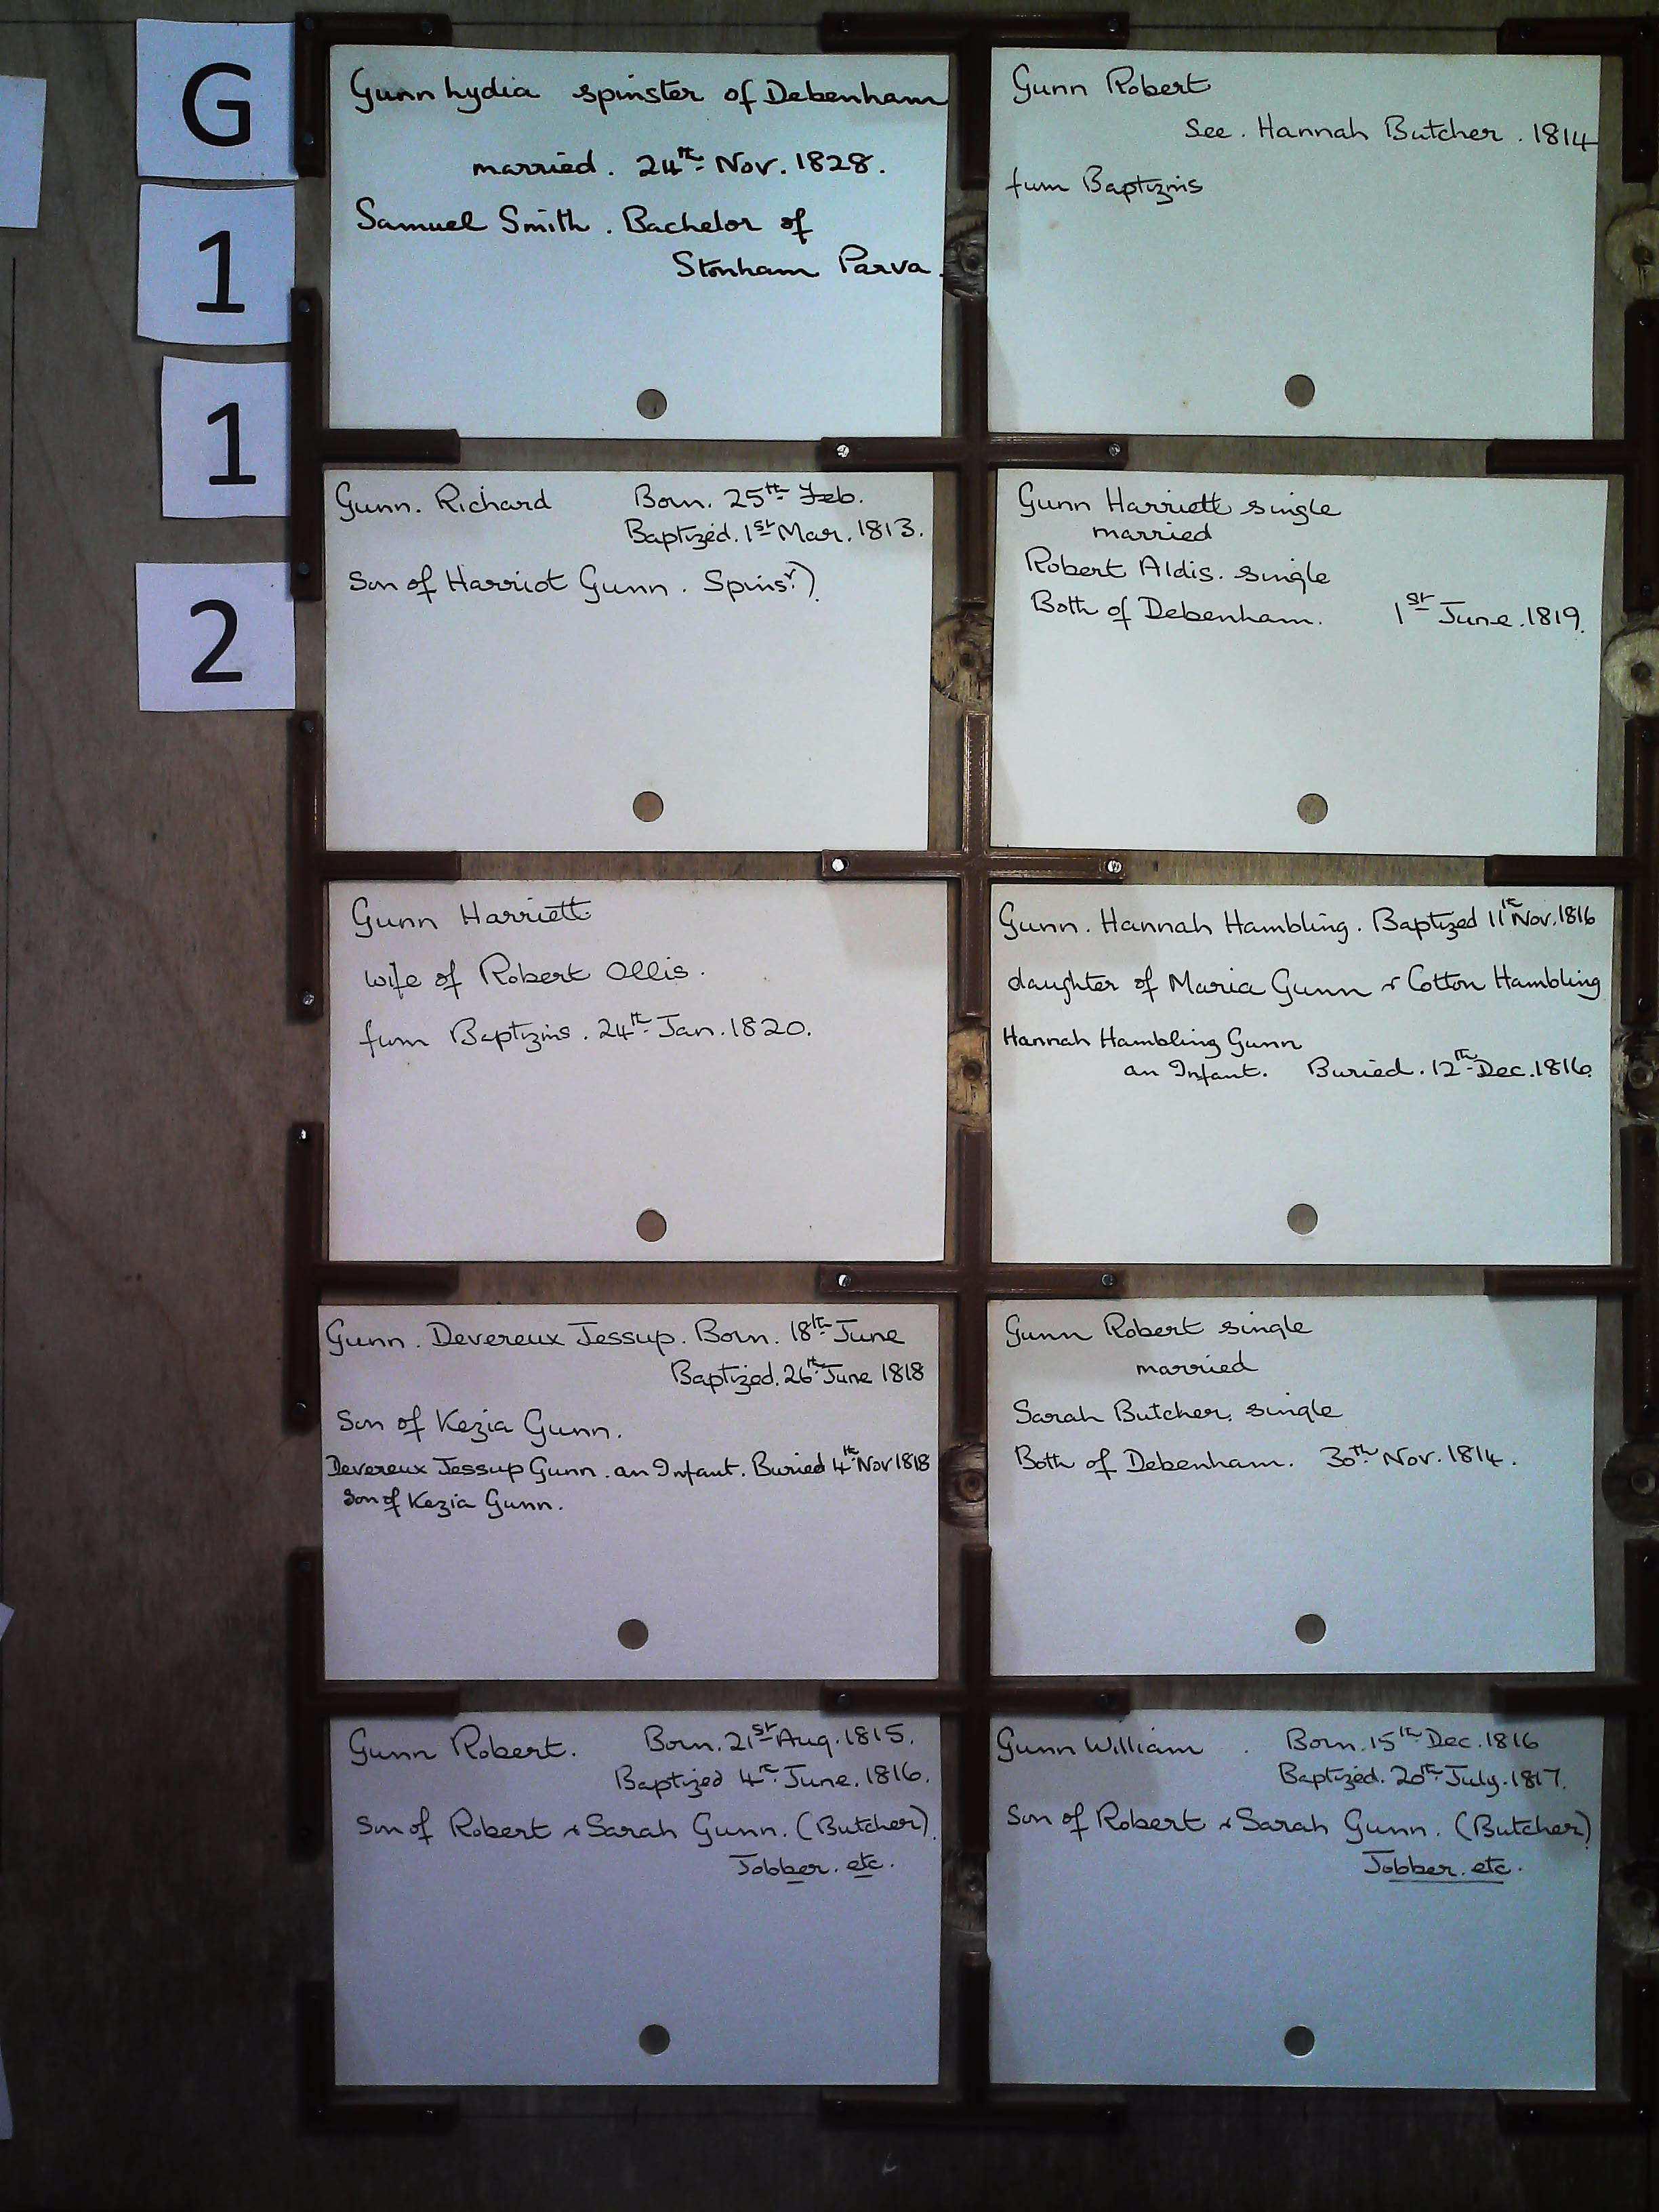 G
1
1
2
Gunn Lydia spinster of Debenham
married. 24th Nov. 1828.
Samuel Smith. Bachelor of
Stonham Parva.
Gunn Robert
See. Hannah Butcher. 1814
from Baptizms
Gunn. Richard Born. 25th Feb.
Baptized. 1st Mar. 1813.
Son of Harriot Gunn. Spinsr.)
Gunn Harriett single
married
Robert Aldis. single
Both of Debenham. 1st June. 1819.
Gunn Harriett
wife of Robert Ollis.
from Baptizms. 24th Jan. 1820.
Gunn. Hannah Hambling. Baptized 11th Nov. 1816
daughter of Maria Gunn & Cotton Hambling
Hannah Hambling Gunn
an Infant. Buried. 12th Dec. 1816.
Gunn. Devereux Jessup. Born. 18th June
Baptized. 26th June 1818
Son of Kezia Gunn.
Devereux Jessup Gunn. an Infant. Buried 4th Nov 1818
Son of Kezia Gunn.
Gunn Robert single
married
Sarah Butcher, single
Both of Debenham. 30th Nov. 1814.
Gunn Robert. Born. 21st Aug. 1815.
Baptized 4th June. 1816.
Son of Robert & Sarah Gunn. (Butcher).
Jobber. etc.
Gunn William. Born. 15th Dec. 1816
Baptized. 20th July. 1817.
Son of Robert & Sarah Gunn. (Butcher)
Jobber. etc.